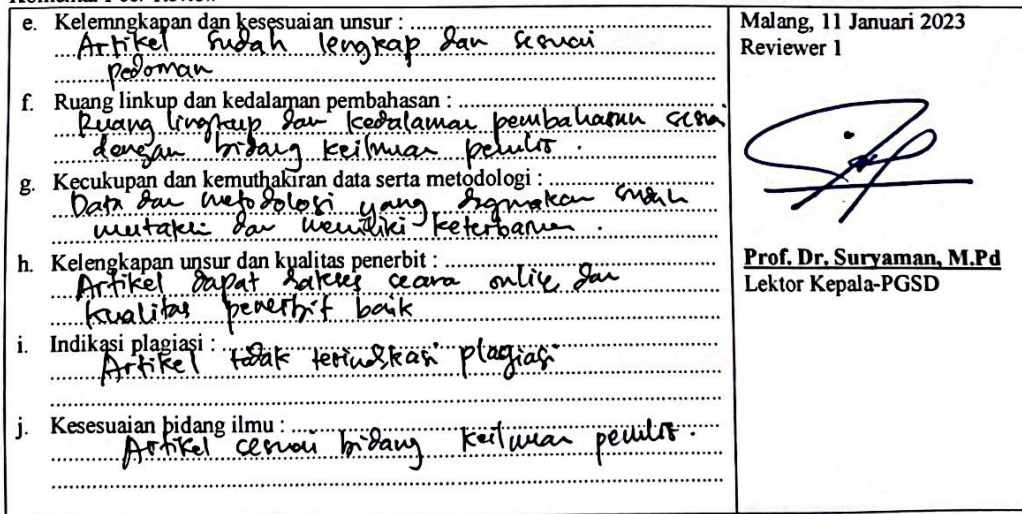 e. Kelemngkapan dan kesesuaian unsur :
Artikel sudah lengkap dan sesuai
pedoman
f. Ruang linkup dan kedalaman pembahasan :
Ruang lingkup dan kedalaman pembahasan sesuai
dengan bidang keilmuan penulis .
g. Kecukupan dan kemuthakiran data serta metodologi :
Data dan metodologi yang digunakan sudah
mutakhir dan memiliki keterbaruan .
h. Kelengkapan unsur dan kualitas penerbit :
Artikel dapat diakses secara online dan
kualitas penerbit baik
i. Indikasi plagiasi :
Artikel tidak terindikasi plagiasi
j. Kesesuaian bidang ilmu :
Artikel sesuai bidang keilmuan penulis .
Malang, 11 Januari 2023
Reviewer 1
Prof. Dr. Suryaman, M.Pd
Lektor Kepala-PGSD